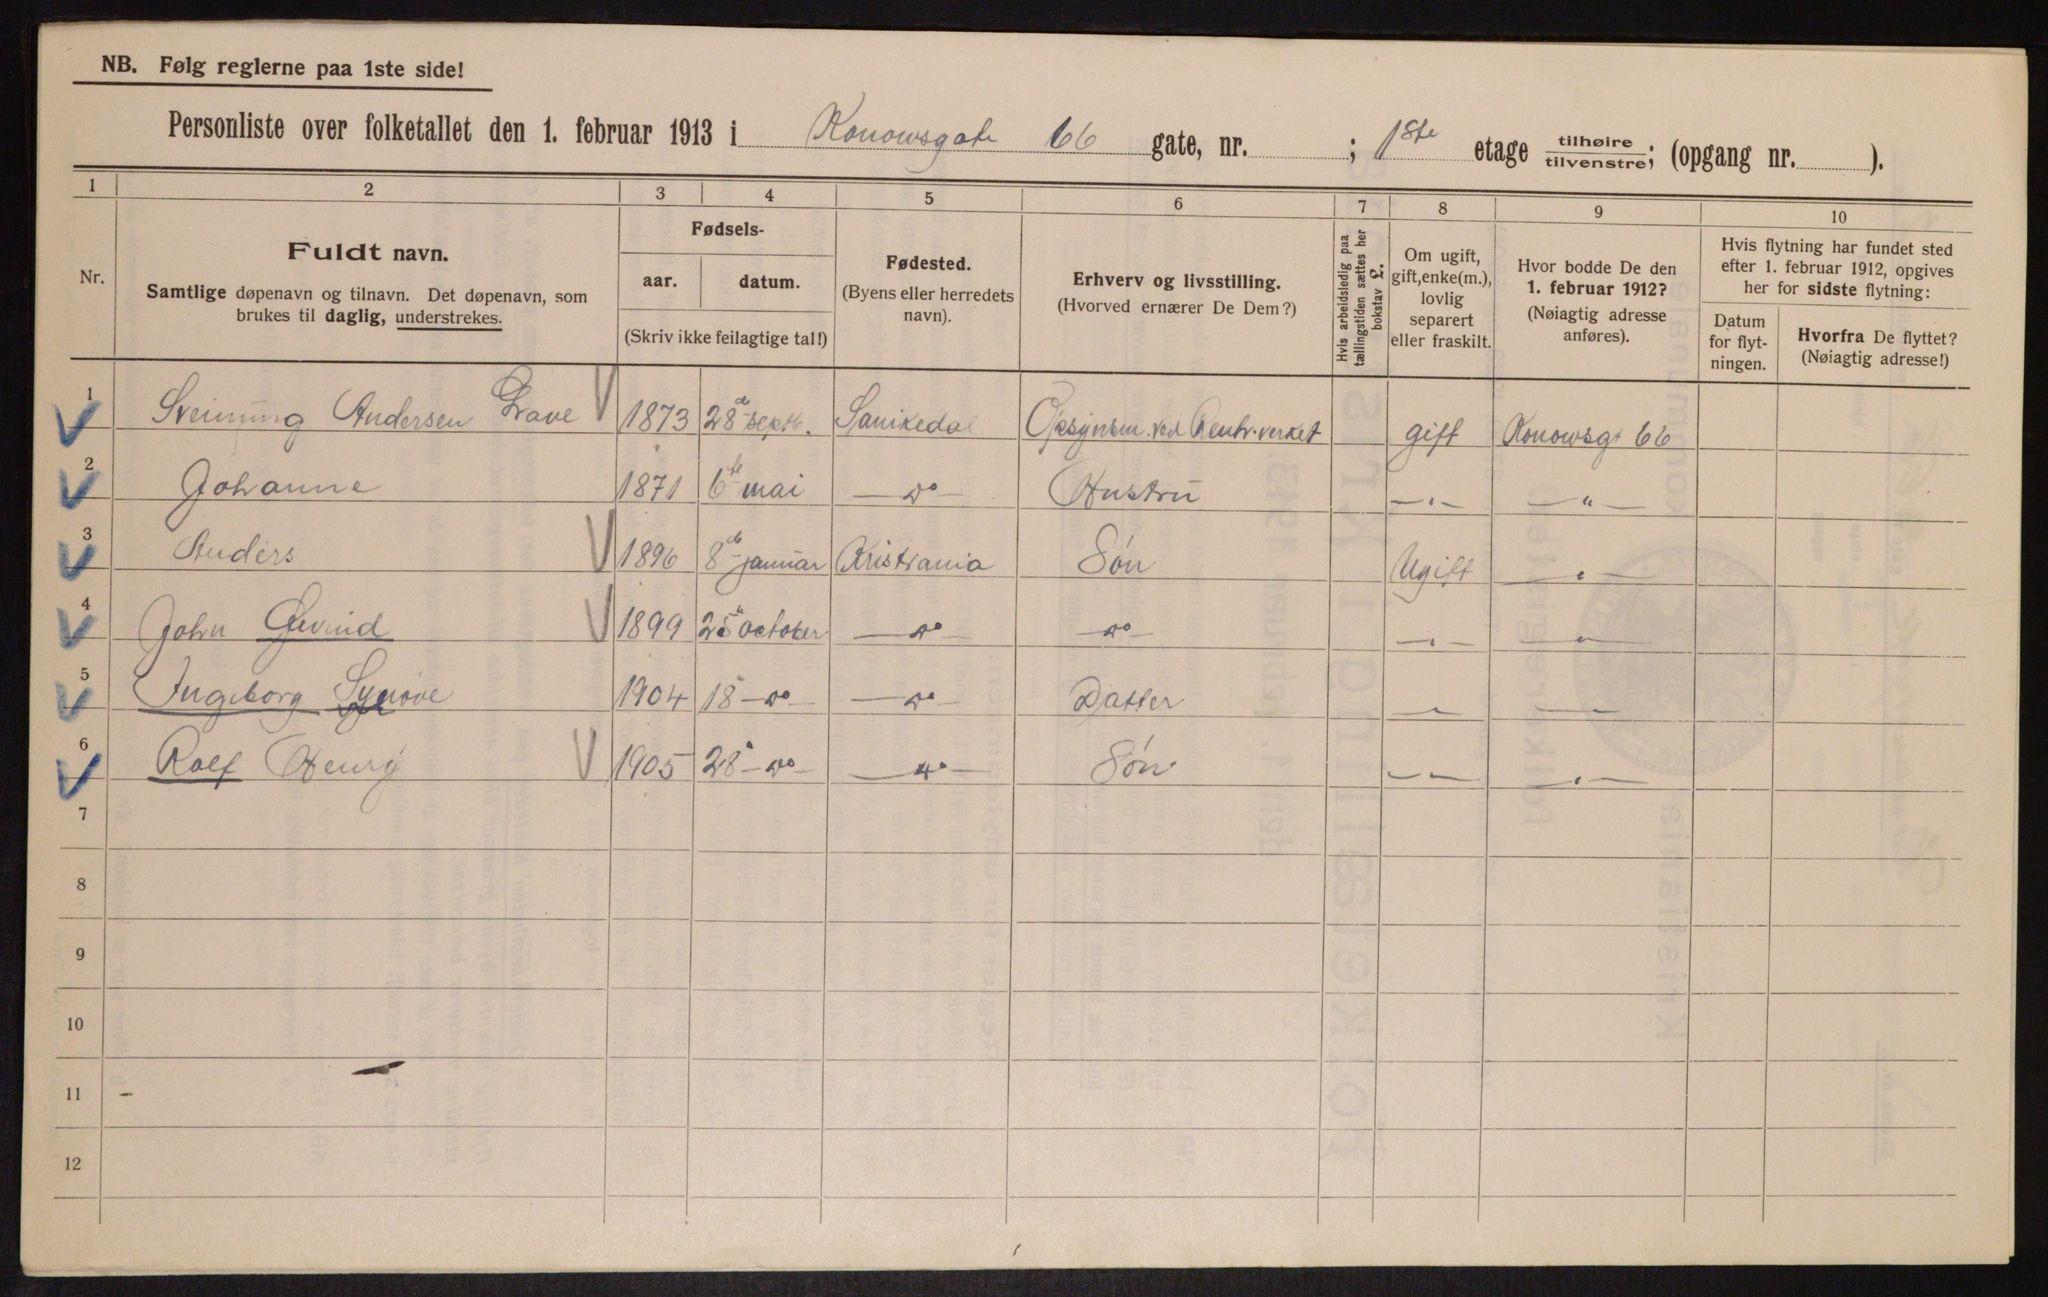 NB. Følg reglerne paa 1ste side!
Personliste over folketallet den 1. februar 1913 i Konowsgate 66 gate, nr. ; 1ste etage tilhøire tilvenstre; (opgang nr. ).
1 2 3 4 5 6 7 8 9 10
Nr.
Fuldt navn.
Samtlige døpenavn og tilnavn. Det døpenavn, som
brukes til daglig, understrekes.
Fødsels-
aar. datum.
(Skriv ikke feilagtige tal!)
Fødested.
(Byens eller herredets
navn).
Erhverv og livsstilling.
(Hvorved ernærer De Dem?)
Hvis arbeidsledig paa
tællingstiden sættes her
bokstav L.
Om ugift,
gift, enke(m.),
lovlig
separert
eller fraskilt.
Hvor bodde De den
1. februar 1912?
(Nøiagtig adresse
anføres).
Hvis flytning har fundet sted
efter 1. februar 1912, opgives
her for sidste flytning:
Datum
for flyt-
ningen.
Hvorfra De flyttet?
(Nøiagtig adresse!)
1 Sveinung Andersen 1873 28de septb. Sanikedal Opsynsm. ved Renh.verket gift Konowsgt 66
2 Johanne 1871 6te mai — do — Hustru — " — — " —
3 Anders 1896 8de januar Kristiania Søn Ugift — " —
4 John Øivind 1899 25 october — do — — do — — " — — " —
5 Ingeborg Synøve 1904 18 — do — — do — Datter — " — — " —
6 Rolf Henry 1905 28 — do — — do — Søn — " — — " —
7
8
9
10
11
12